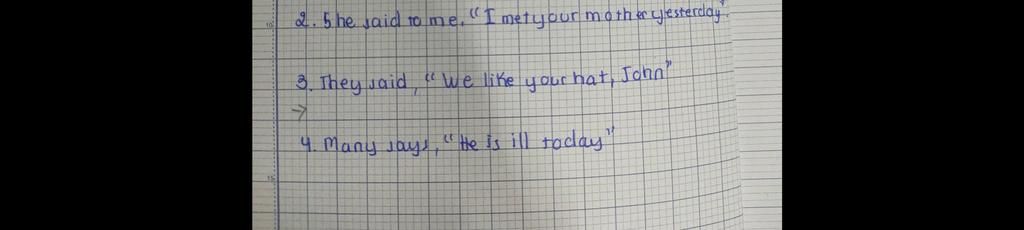 2. She said to me, "I met your mother yesterday".
3. They said, "We like your hat, John"
→
4. Many says, "He is ill today"